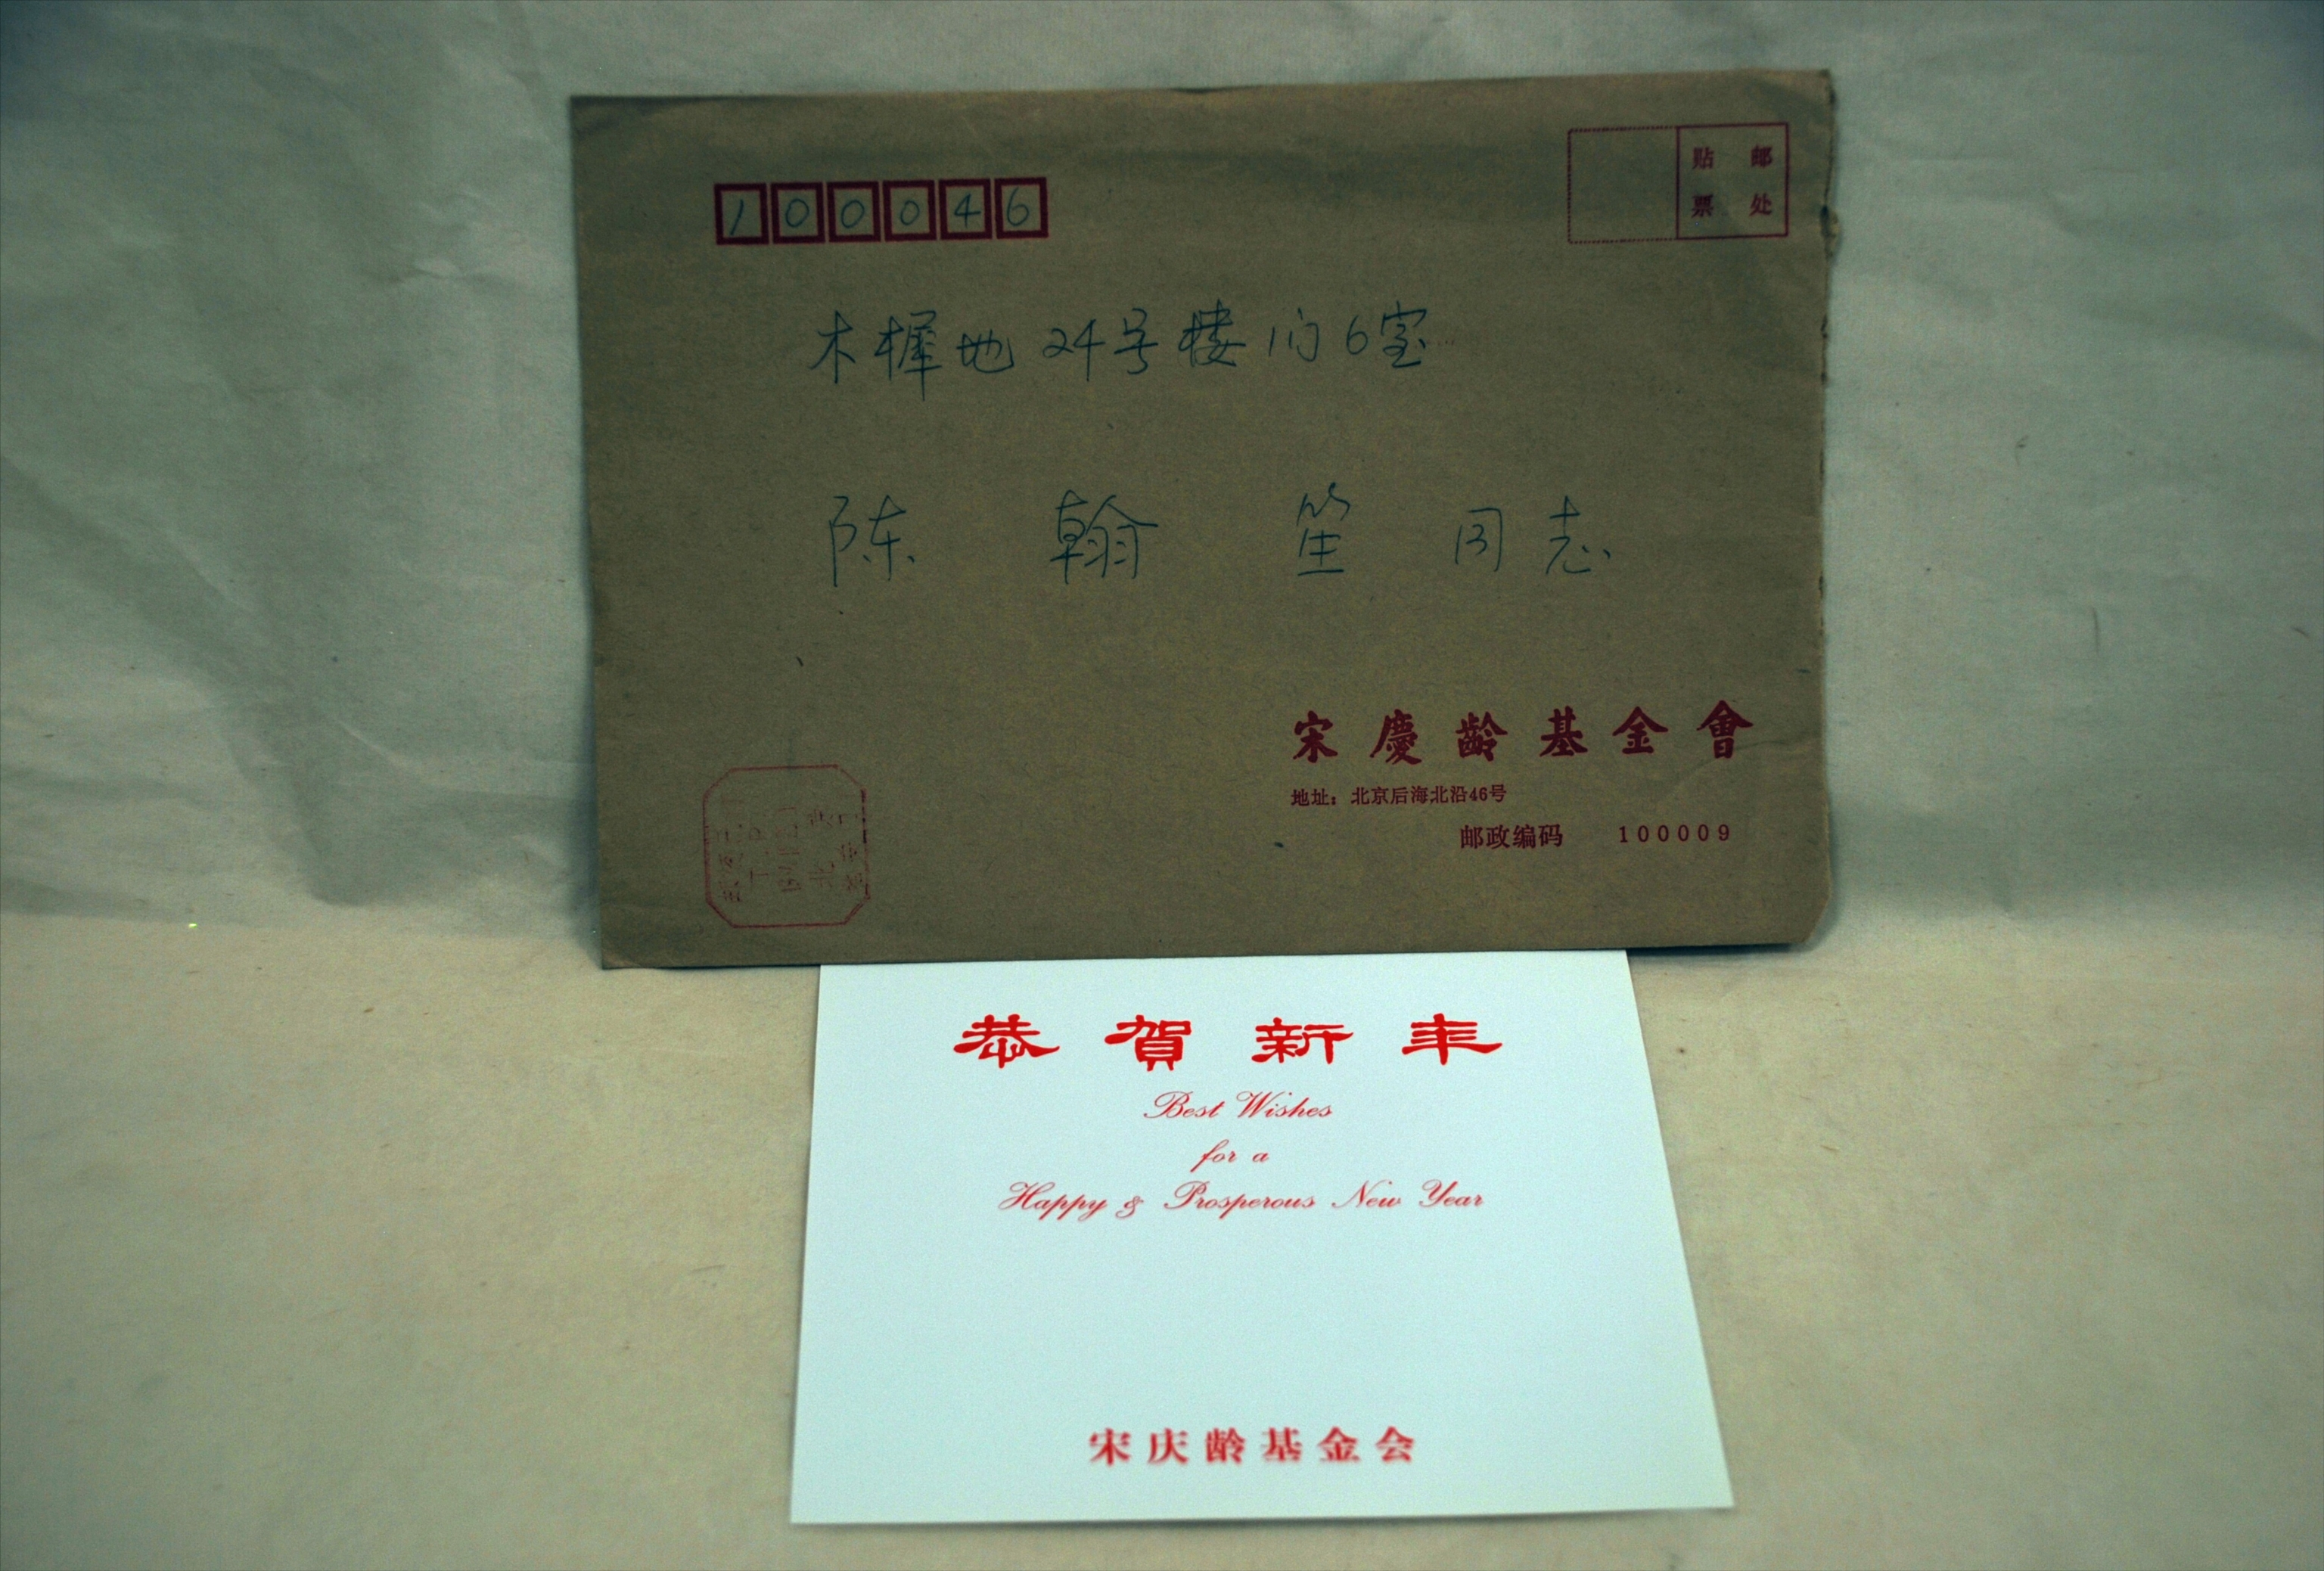 100046
贴 邮
票 处
木樨地24号楼1门6室
陈翰笙同志
宋慶龄基金會
地址：北京后海北沿46号
邮政编码 100009
恭賀新年
Best Wishes
for a
Happy & Prosperous New Year
宋庆龄基金会